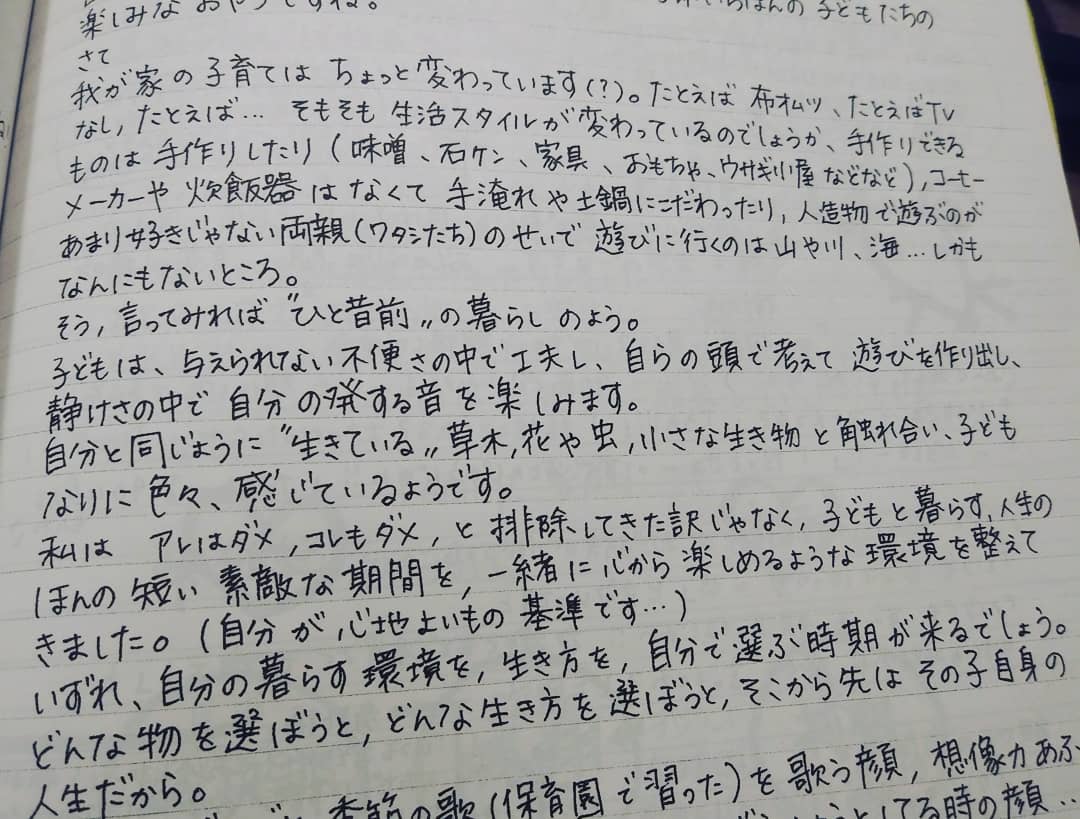 楽しみなおやつですね。 ほんの子どもたちの
さて
我が家の子育ては ちょっと変わっています(?)。たとえば 布オムツ、たとえばTV
なし, たとえば… そもそも 生活スタイルが変わっているのでしょうか、手作りできる
ものは 手作りしたり(味噌、石ケン、家具、おもちゃ、ウサギ小屋 などなど), コーヒー
メーカーや 炊飯器 はなくて 手淹れや土鍋にこだわったり, 人造物で遊ぶのが
あまり好きじゃない両親(ワタシたち)のせいで 遊びに行くのは山や川、海…しかも
なんにもないところ。
そう, 言ってみれば〝ひと昔前〟の暮らしのよう。
子どもは、与えられてない不便さの中で工夫し、自らの頭で考えて 遊びを作り出し、
静けさの中で 自分の発する音を楽しみます。
自分と同じように〝生きている〟草木, 花や虫, 小さな生き物と触れ合い、子ども
なりに色々、感じているようです。
私は アレはダメ, コレもダメ, と排除してきた訳じゃなく, 子どもと暮らす, 人生の
ほんの短い 素敵な期間を, 一緒に心から楽しめるような環境を整えて
きました。(自分が心地よいもの 基準です…)
いずれ、自分の暮らす環境を, 生き方を, 自分で選ぶ時期が来るでしょう。
どんな物を選ぼうと, どんな生き方を選ぼうと, そこから先は その子自身の
人生だから。
季節の歌(保育園で習った)を歌う顔, 想像力あふ
してる時の顔‥